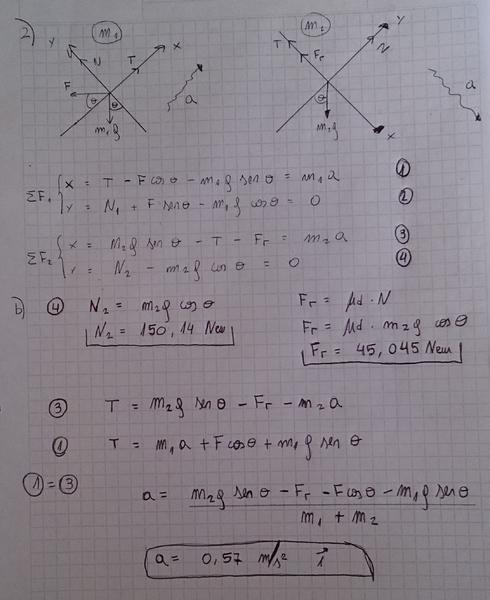 2)
m₁
m₂
y
N
T
x
F
θ
θ
m₁g
a
T
Fr
y
N
θ
m₂g
x
a
ΣF₁ { x = T - F cos θ - m₁g sen θ = m₁a ①
y = N₁ + F sen θ - m₁g cos θ = 0 ②
ΣF₂ { x = m₂g sen θ - T - Fr = m₂a ③
y = N₂ - m₂g cos θ = 0 ④
b) ④ N₂ = m₂g cos θ
N₂ = 150,14 New
Fr = μd · N
Fr = μd · m₂g cos θ
Fr = 45,045 New
③ T = m₂g sen θ - Fr - m₂a
① T = m₁a + F cos θ + m₁g sen θ
① = ③ a = (m₂g sen θ - Fr - F cos θ - m₁g sen θ) / (m₁ + m₂)
a = 0,57 m/s² i⃗